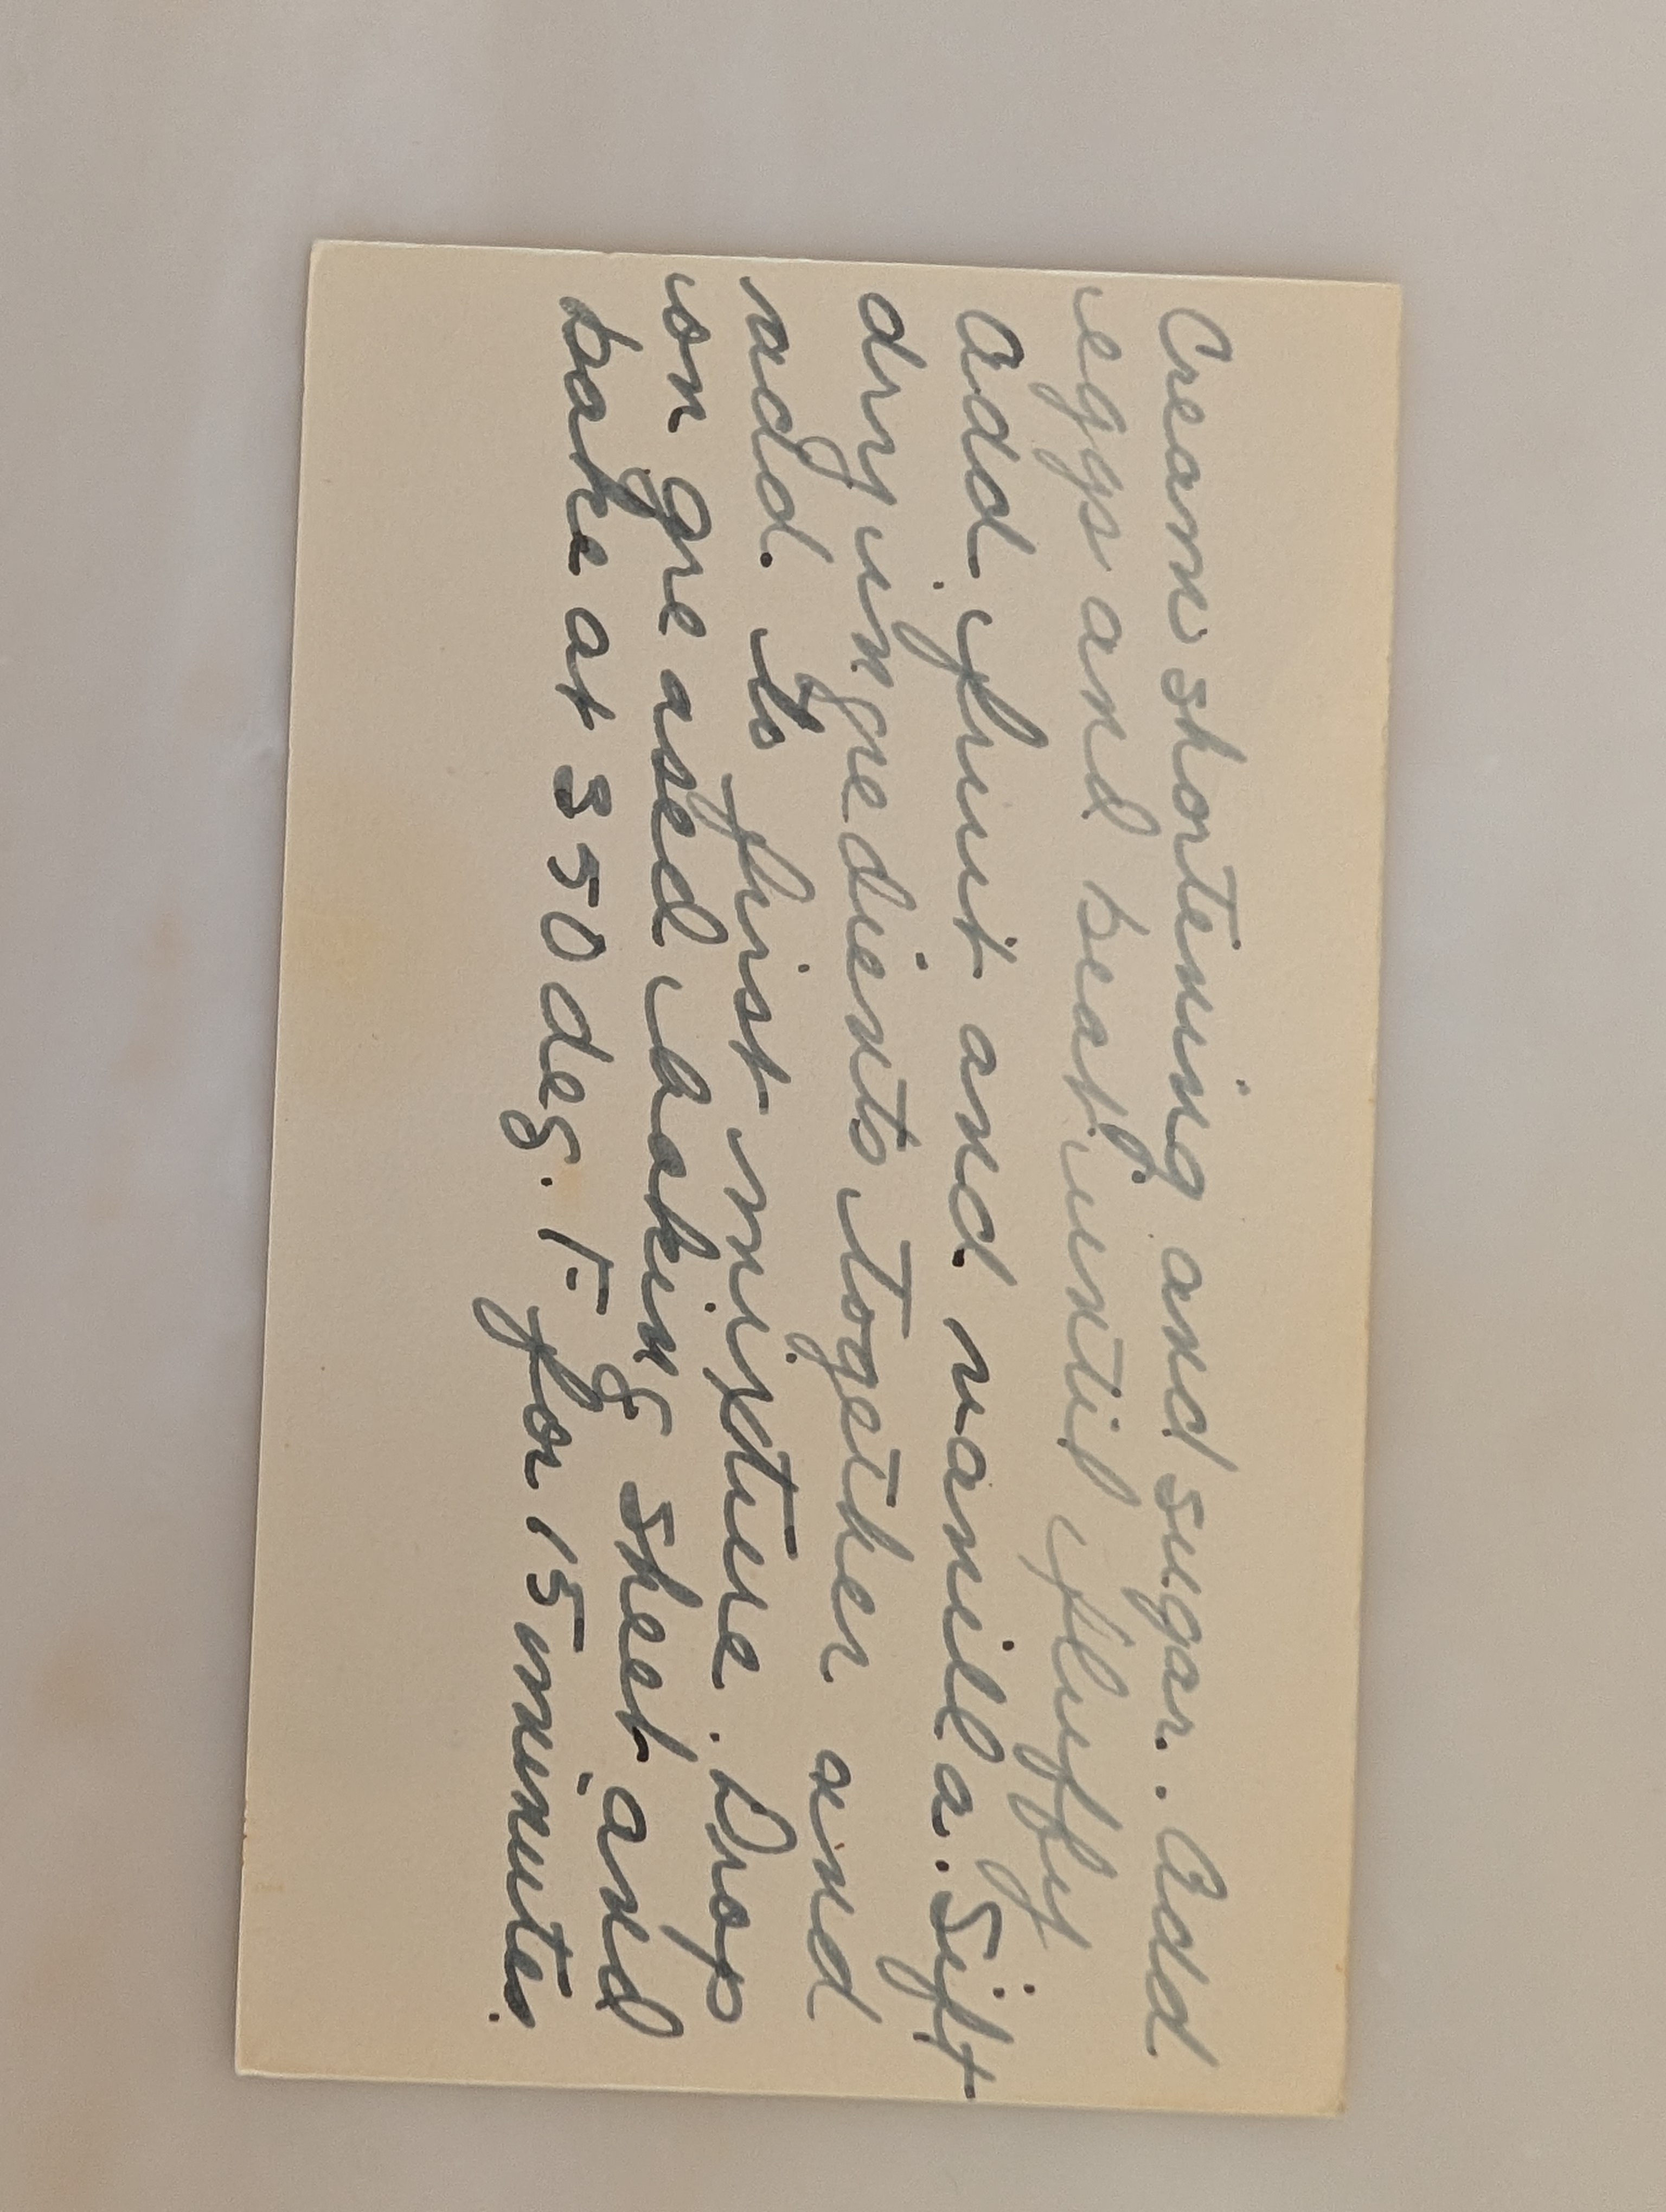 Cream shortening and sugar. Add
eggs and beat until fluffy
Add fruit and vanilla. Sift
dry ingredients together and
add to first mixture. Drop
on greased baking sheet and
bake at 350 deg. F. for 15 minutes.